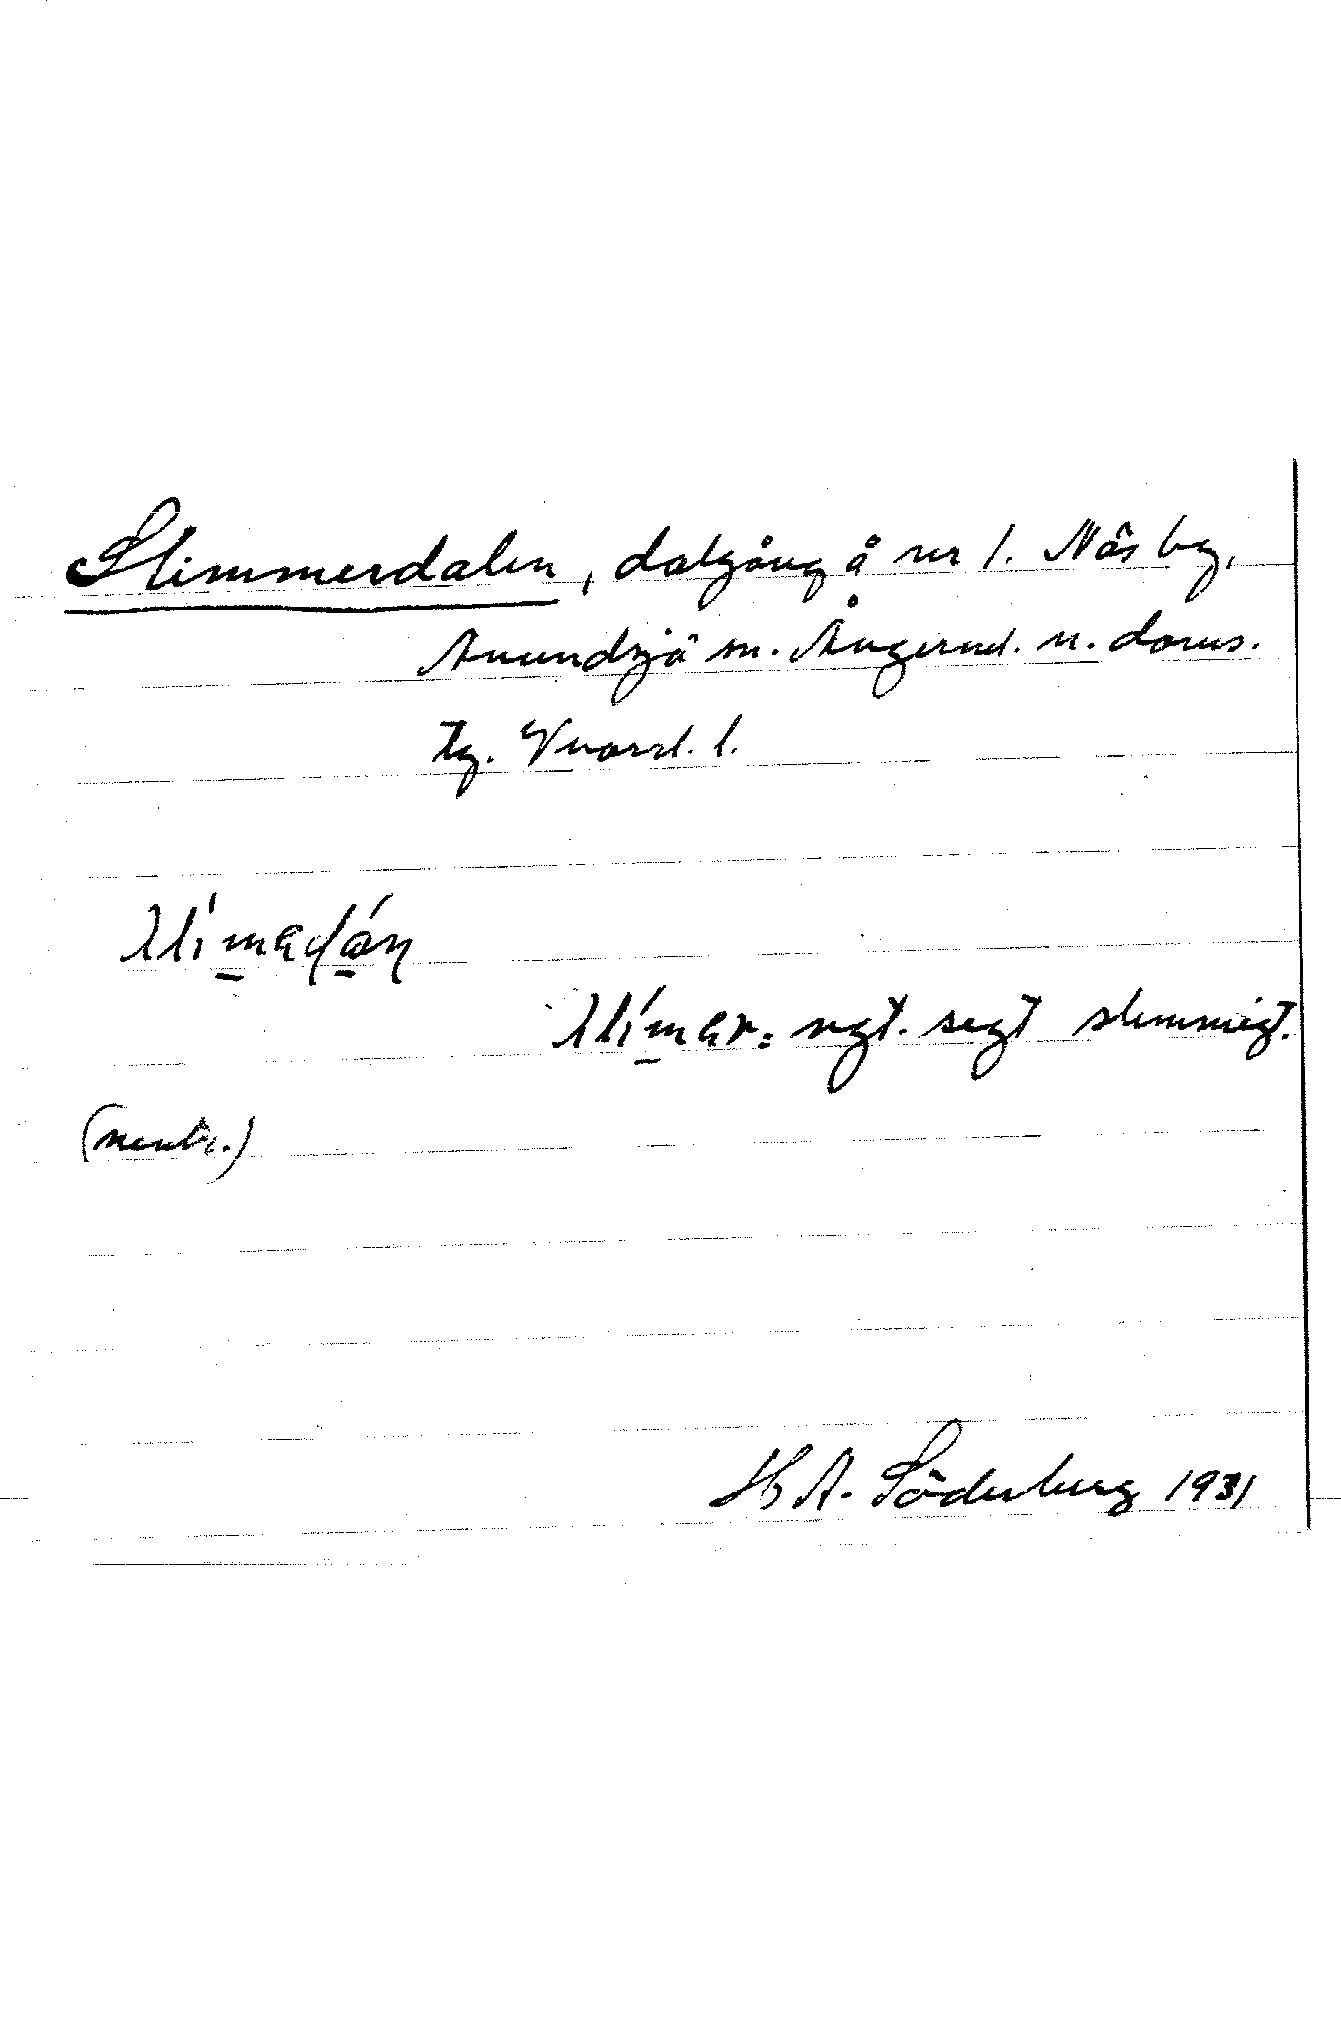 Slimmerdalen, dalgång å nr 1. Näs by,
Anundsjö sn. Ångerml. n. dorus.
tg.
slímadán
slímar: ngt. segt slemmigt.
(neutr.)
H A. Söderberg 1931